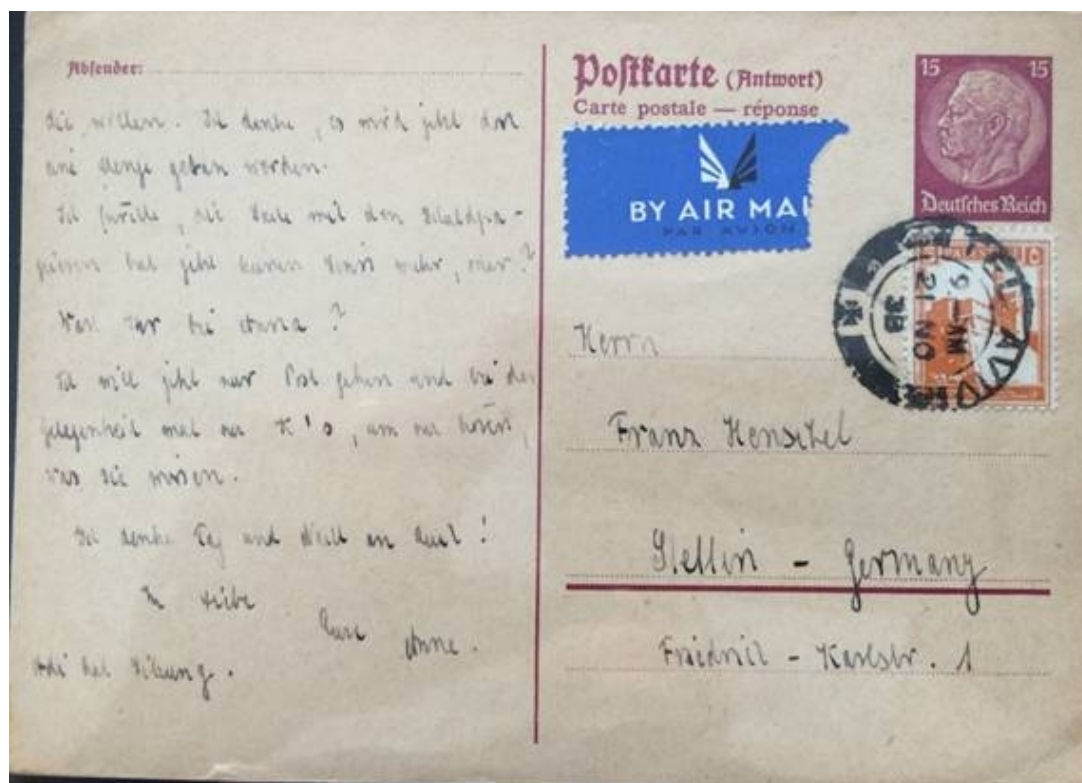 Absender:
die wollen. Ich denke, es wird jetzt dort
eine Menge getan werden.
Ich , die mit den
hat jetzt keinen Sinn mehr, oder?
War bei Anna?
Ich will jetzt zur Post gehen und bei der
Gelegenheit mal zu K's, um zu hören,
was sie wissen.
Ich denke Tag und Nacht an Euch!
In Liebe
Eure Anne.
hat Sitzung.
Postkarte (Antwort)
Carte postale — réponse
BY AIR MAI
PAR AVION
15 15
Deutsches Reich
PALESTINE
TEL AVIV
9 - AM
21 NO
38
Herrn
Franz Henschel
Stettin - Germany
Friedrich - Karlstr. 1